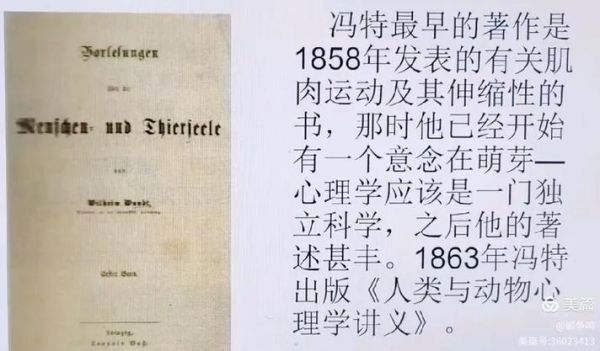 Vorlesungen
über die
Menschen- und Thierseele
von
Wilhelm Wundt,
Erster Band.
Leipzig,
Leopold Voß.
冯特最早的著作是
1858年发表的有关肌
肉运动及其伸缩性的
书，那时他已经开始
有一个意念在萌芽—
心理学应该是一门独
立科学，之后他的著
述甚丰。1863年冯特
出版《人类与动物心
理学讲义》。
美篇
美篇号:36023413